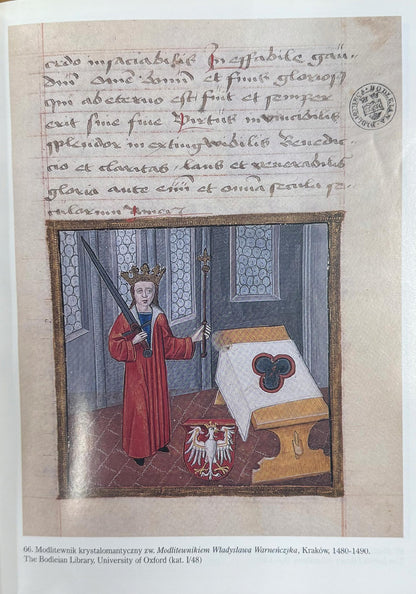 insaciabilis Ineffabile gau
dium Omne bonum et finis
qui ab eterno est fuit et semper
erit sine fine Virtus invincibilis
splendor inextingwibilis Benedic
cio et claritas laus et venerabilis
gloria ante et omnia secula se
culorum Amen
66. Modlitewnik krystalomantyczny zw. Modlitewnikiem Władysława Warneńczyka, Kraków, 1480-1490.
The Bodieian Library, University of Oxford (kat. I/48)